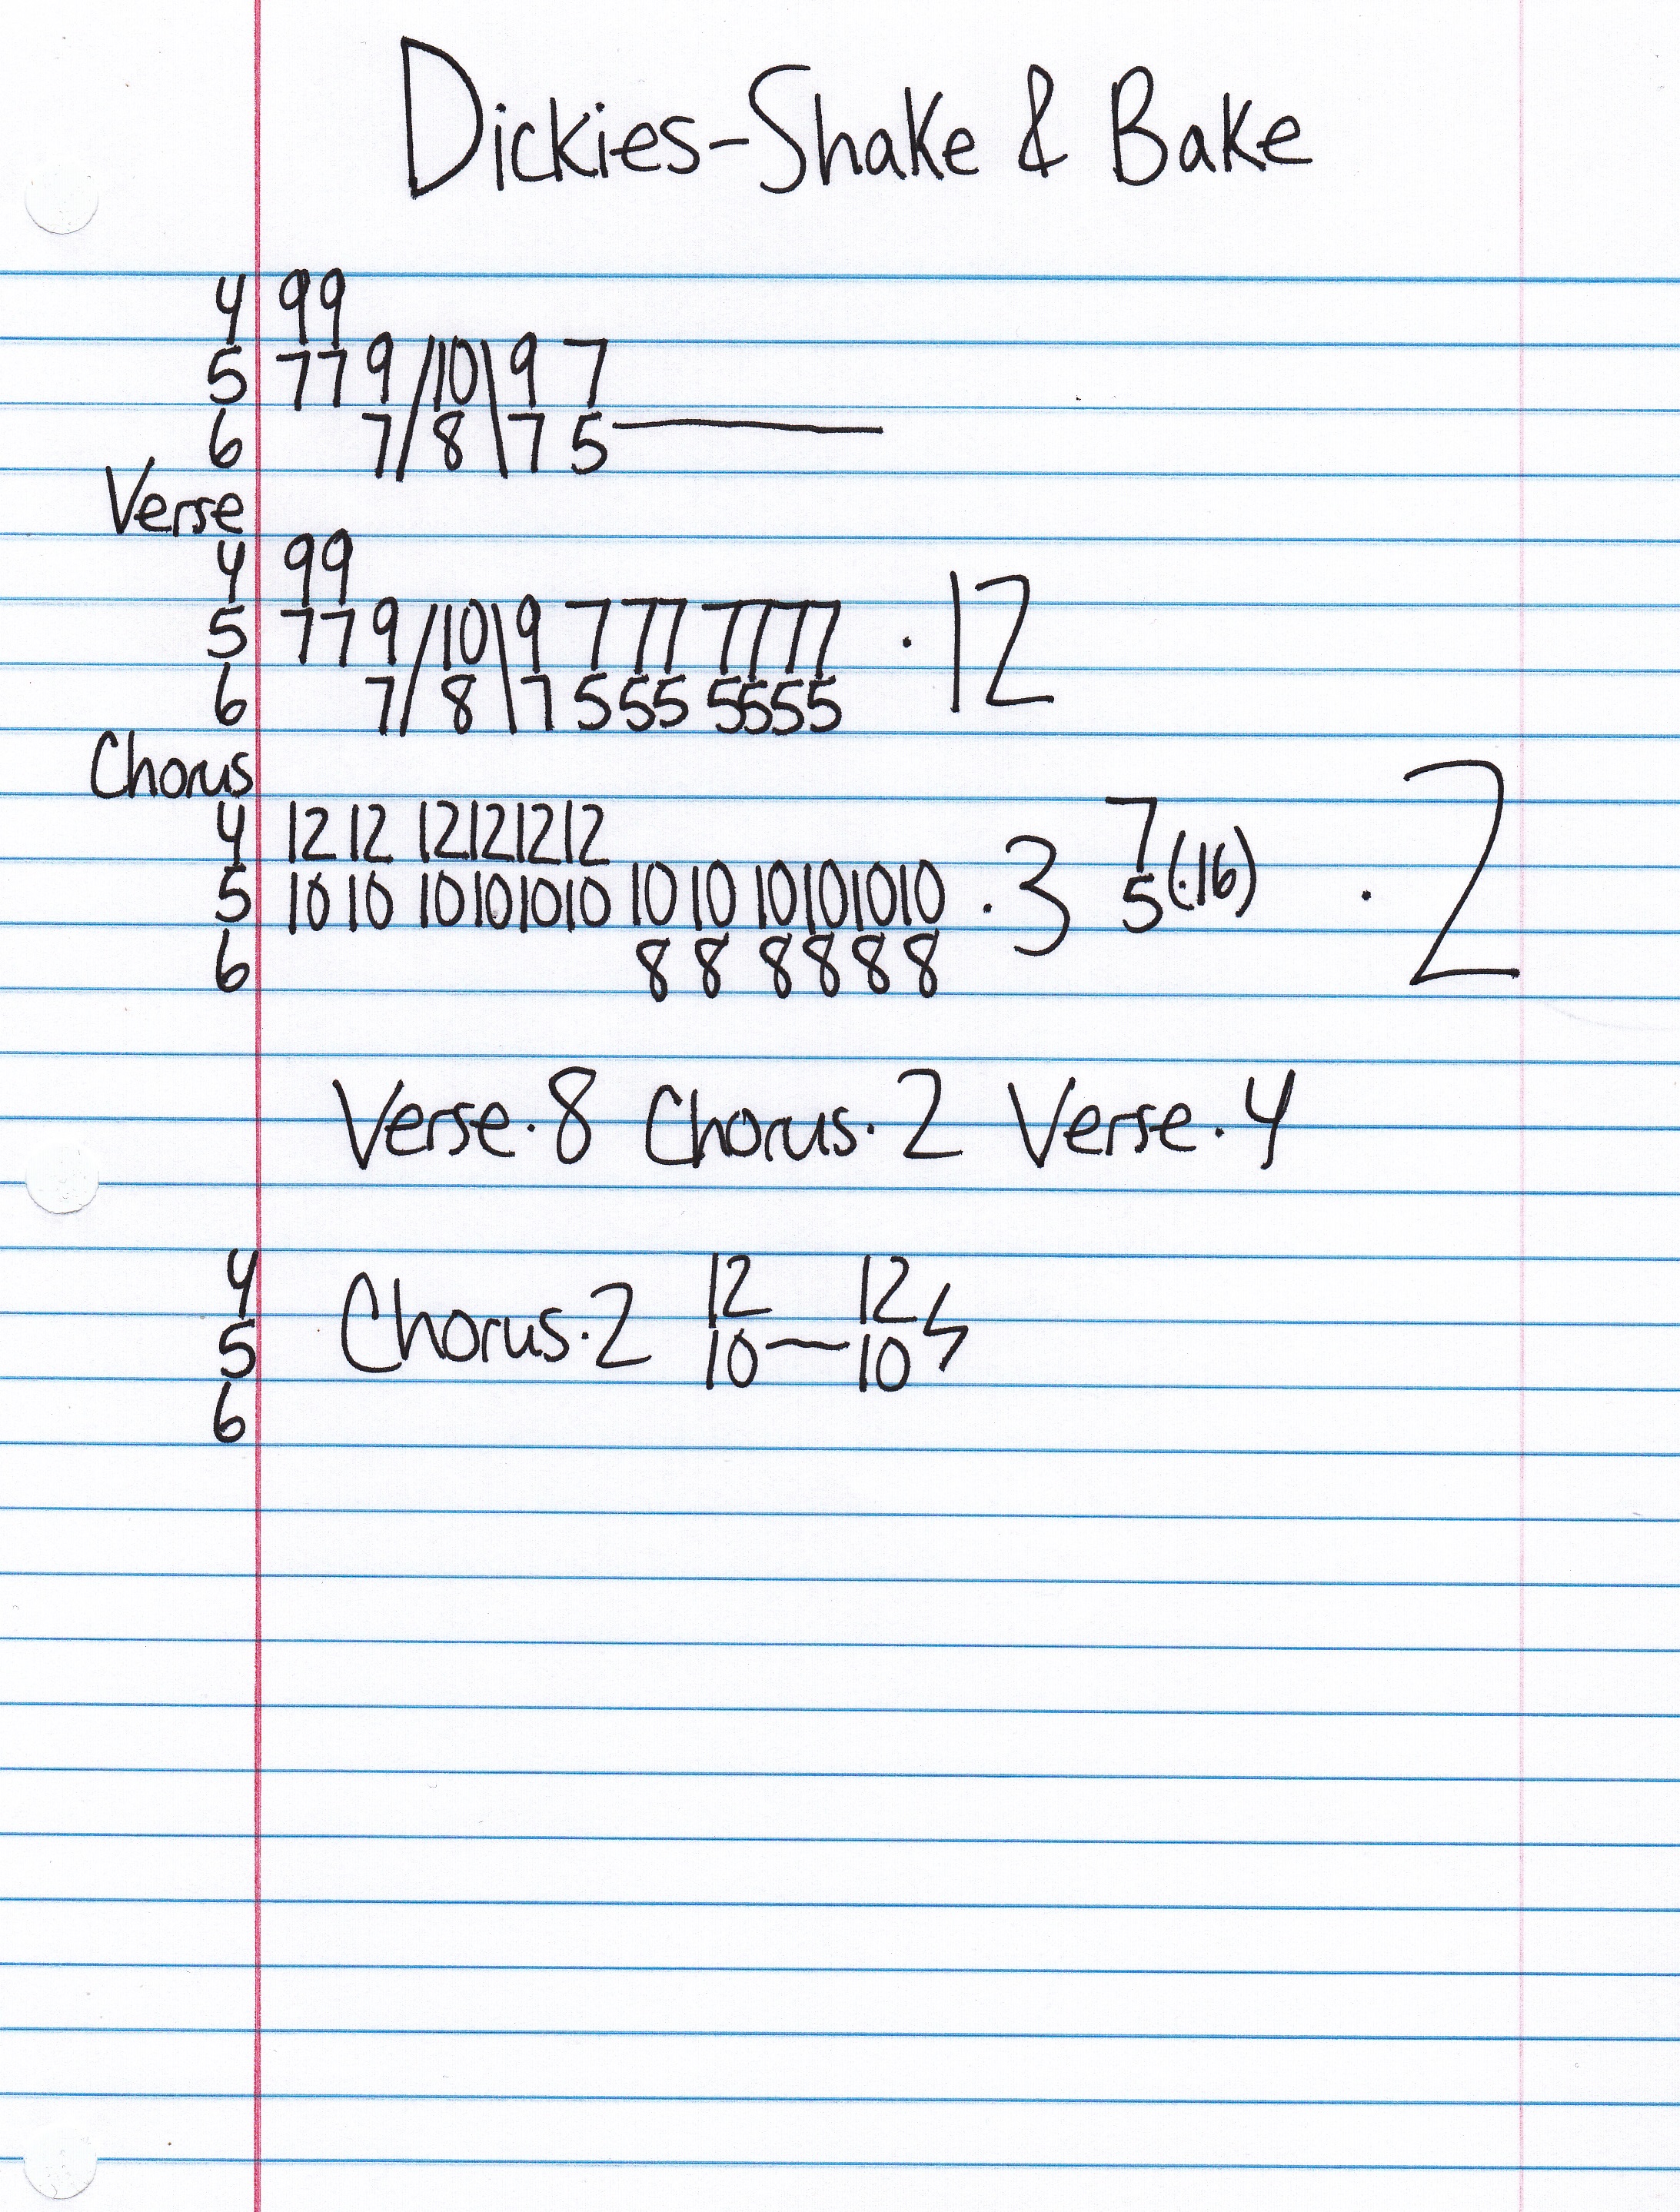 Dickies-Shake & Bake
4 99
5 77 9/10\9 7
6 7/8\7 5—
Verse
4 99
5 77 9/10\9 777 7777 · 12
6 7/8\7 555 5555
Chorus
4 12 12 12121212 7
5 10 10 10101010 10 10 10101010 · 3 5(·16) · 2
6 8 8 8 8 8 8
Verse·8 Chorus·2 Verse·4
4 12 12
5 Chorus·2 10—10 ϟ
6